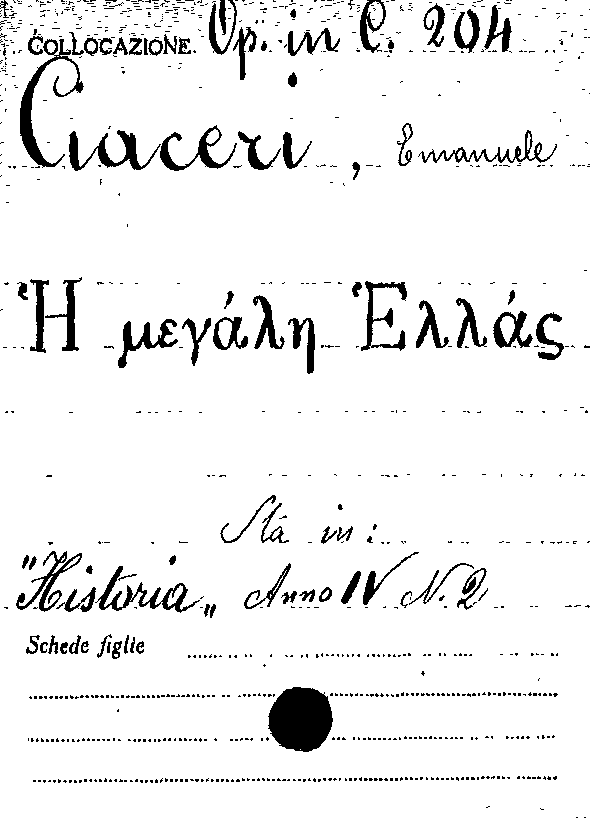 COLLOCAZIONE Op. in C. 204
Ciaceri, Emanuele
Ἡ μεγάλη Ἑλλάς
Stà in:
"Historia„ Anno IV N. 2
Schede figlie